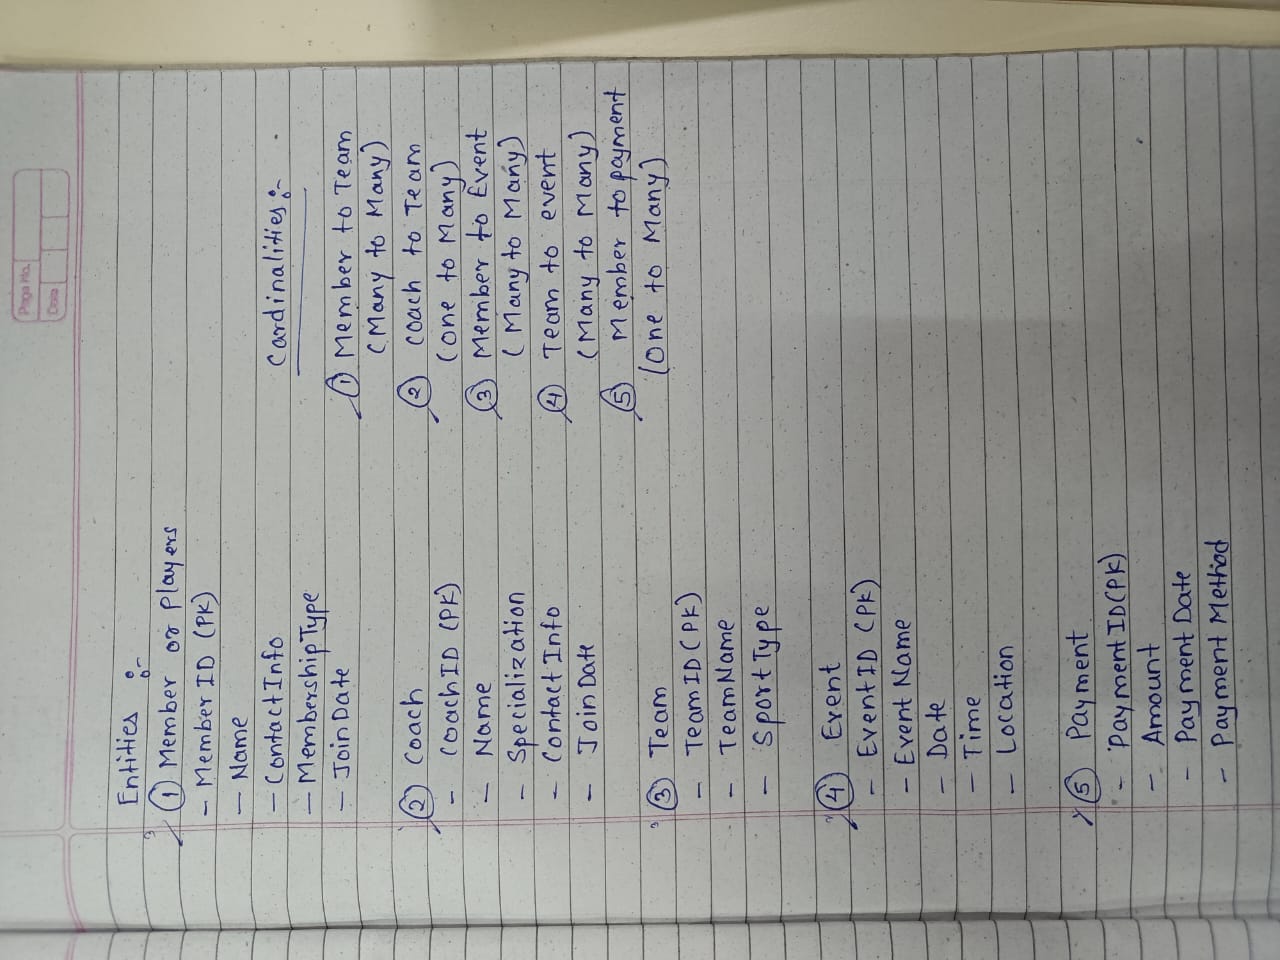 Page No.
Date
Entities :-
① Member or Players
- Member ID (PK)
- Name
- Contact Info
- MembershipType
- Join Date
② Coach
- Coach ID (PK)
- Name
- Specialization
- Contact Info
- Join Date
③ Team
- Team ID (PK)
- Team Name
- Sport Type
④ Event
- Event ID (PK)
- Event Name
- Date
- Time
- Location
⑤ Payment
- Payment ID (PK)
- Amount
- Payment Date
- Payment Method
Cardinalities :-
① Member to Team
(Many to Many)
② coach to Team
(one to Many)
③ Member to Event
(Many to Many)
④ Team to event
(Many to Many)
⑤ Member to payment
(One to Many)